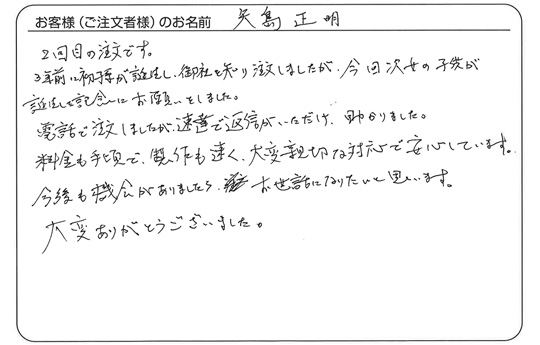 お客様（ご注文者様）のお名前 矢島正明
2回目の注文です。
3年前に初孫が誕生し、御社を知り注文しましたが、今回次女の子供が
誕生し記念にお願いをしました。
電話で注文しましたが、速達で返信がいただけ、助かりました。
料金も手頃で、製作も速く、大変親切な対応で安心しています。
今後も機会がありましたら、お世話になりたいと思います。
大変ありがとうございました。